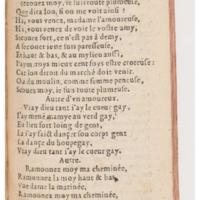 ſecouez moy, ie ſuis toute plumeuſe,
Que dira lon, ſi on me voit ainſi ?
Ha, vous venez, madame l'amoureuſe,
Ha, vous venez de voir le voſtre amy,
Secouez fort, ce n'eſt pas à demy,
A ſecouer ie ne ſuis pareſſeuſe,
Enhaut, & au bas, & au milieu auſſi,
Car lon diroit du marché doit venir.
Ou du moulin, comme femme penteuſe,
Secouez moy, ie ſuis toute plumeuſe.
Autre d'vn amoureux.
Vray dieu tant i'ay le cueur gay,
I'ay mené mamye au verd gay,
En lieu fort loing de gens,
La i'ay faict danſer ſon corps gent
La danſe du houpegay,
Vray dieu tant i'ay le cueur gay.
Autre.
Ramonnez moy ma cheminée,
Ramonnez la moy haut & bas,
Vne dame la matinée,
Ramonnez moy ma cheminée,